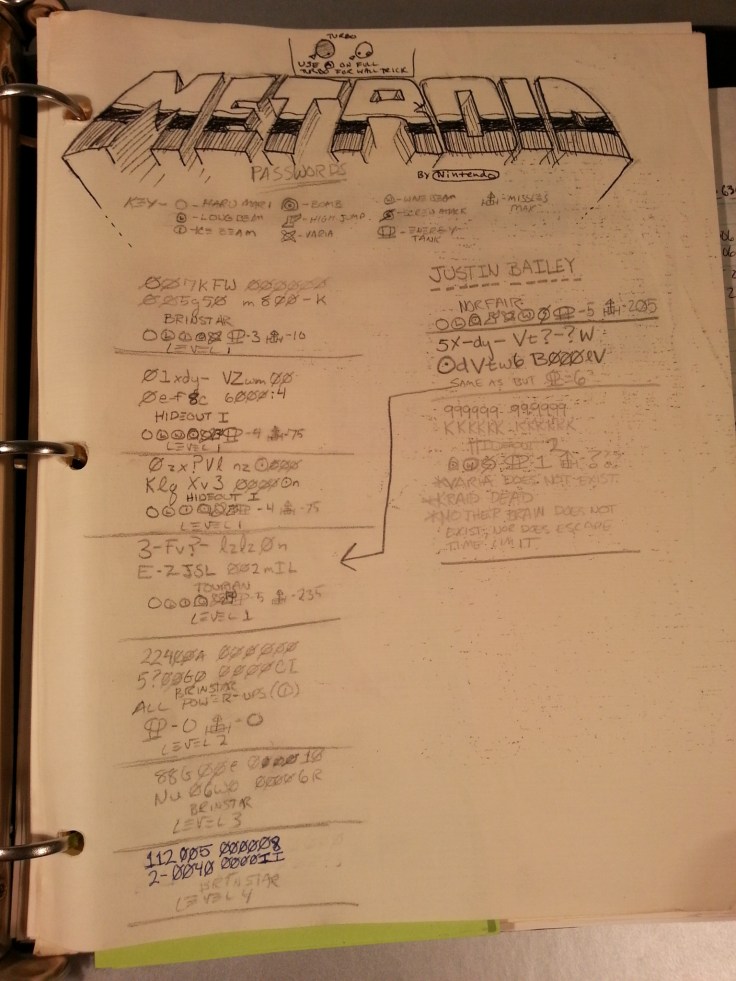 TURBO
USE Ⓐ ON FULL
TURBO FOR WALL TRICK
METROID
PASSWORDS
By Nintendo
KEY- - MARU MARI
- LONG BEAM
- ICE BEAM
- BOMB
- HIGH JUMP
- VARIA
- WAVE BEAM
- SCREW ATTACK
- ENERGY
TANK
- MISSLES
MAX
ØØ7KFW ØØØØØØ
ØØ5g5Ø m8ØØ-K
BRINSTAR
-3 -10
LEVEL 1
Ø1xdy- VZwmØØ
Øe-f8c 6ØØØ:4
HIDEOUT I
-4 -75
LEVEL 1
Øzx?Vl nz
Klg Xv3
HIDEOUT I
-4 -75
LEVEL 1
3-Fv?- lzlzØn
E-ZJSL ØØ2mIL
TOURIAN
-5 -235
LEVEL 1
ØØØØØØ
5?ØØGØ ØØØØCI
BRINSTAR
ALL POWER-UPS
-O -O
LEVEL 2
BRINSTAR
LEVEL 3
112ØØ5 ØØØØØ8
2-ØØ4Ø ØØØØII
BRINSTAR
LEVEL 4
JUSTIN BAILEY
------ ------
NORFAIR
-5 -205
5X-dy- Vt?-?W
dVtw6 BØØØlV
SAME AS BUT =6
999999 999999
KKKKKK KKKKKK
HIDEOUT 2
1
*VARIA DOES NOT EXIST
*KRAID DEAD
*MOTHER BRAIN DOES NOT
EXIST, NOR DOES ESCAPE
TIME LIMIT